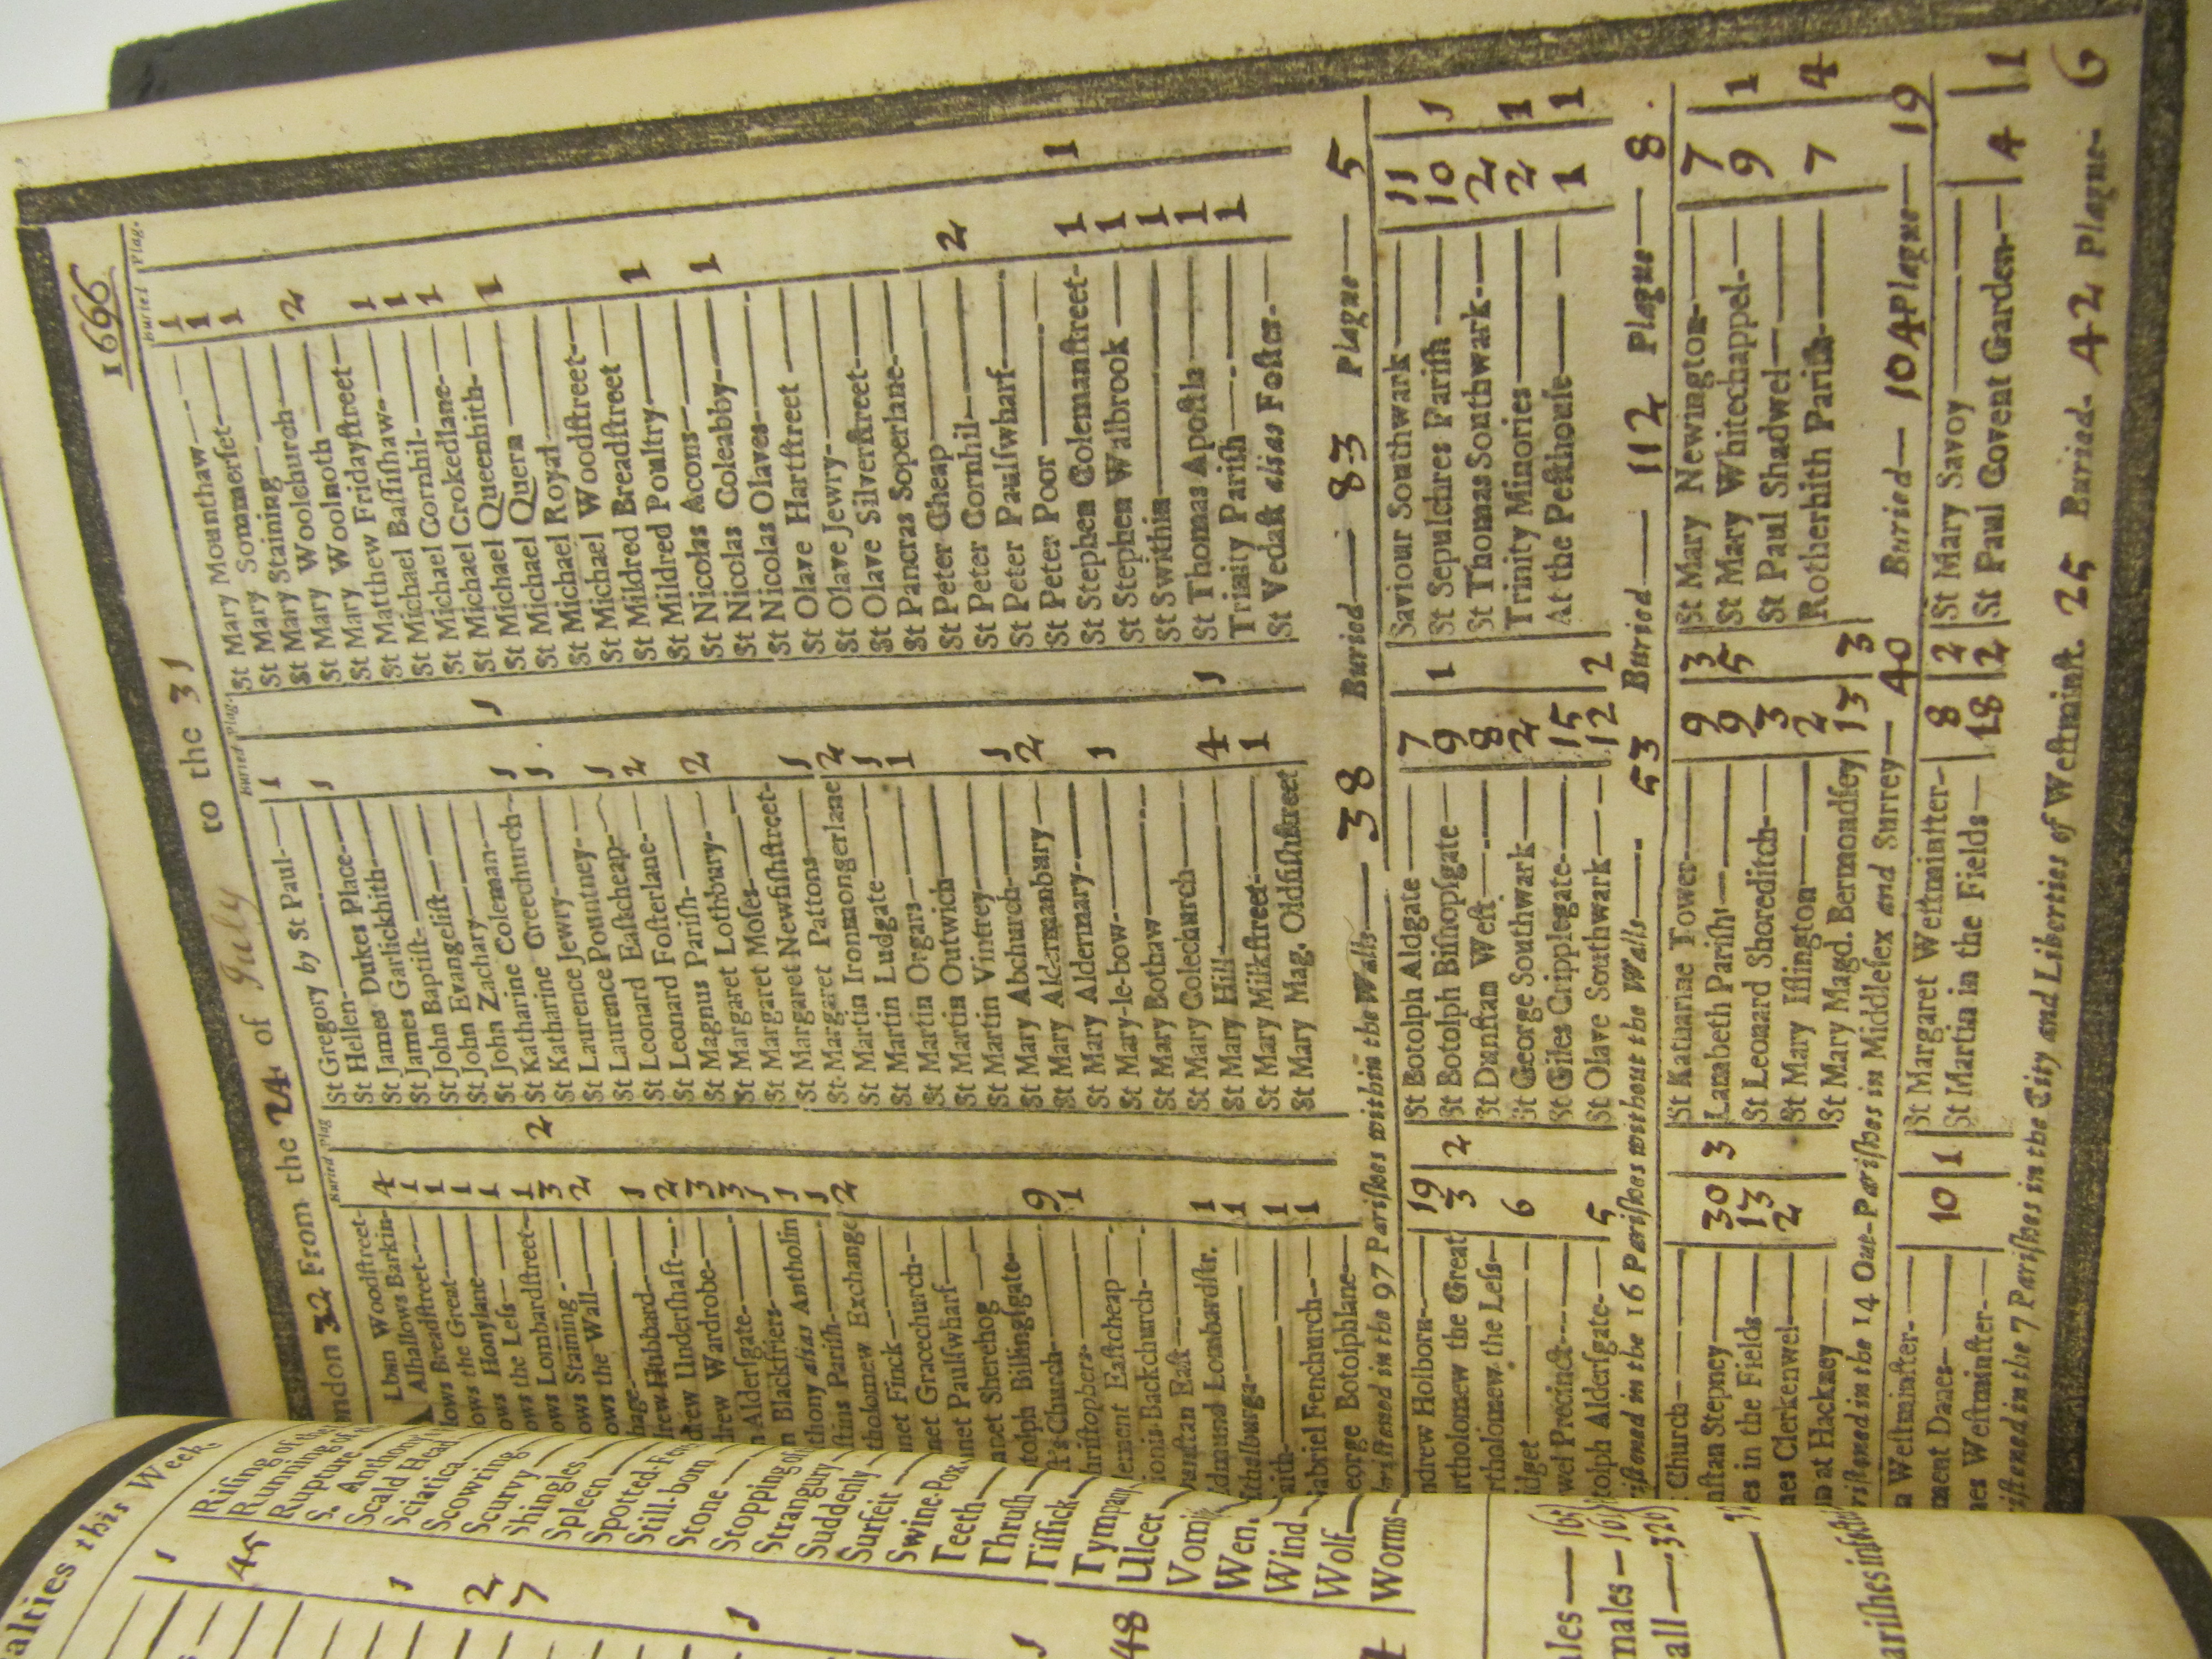 1666
ndon 32 From the 24 of July to the 31
Buried Plag
Lban Woodstreet-
Alhallows Barkin- 4
lows Breadstreet- 1
lows the Great 1
ows Honylane 1
ows the Less 1
ows Lombardstreet 1
ows Staining 3 2
ows the Wall 2
hage-
drew Hubbard 1
drew Undershaft 2
drew Wardrobe 3
Aldersgate 3
n Blackfriers 1
thony alias Antholin 1
stins Parish 1
tholomew Exchange 2
net Finck
net Gracechurch
net Paulswharf
net Sherehog
tolph Billingsgate
st's Church 9
hristophers 1
ement Eastcheap
ionis Backchurch
unstan East
dmund Lombardstr. 1
thelburga 1
aith 1
abriel Fenchurch 1
eorge Botolphlane
Buried Plag.
St Gregory by St Paul 1
St Hellen 1
St James Dukes Place
St James Garlickhith
St John Baptist
St John Evangelist
St John Zachary 1
St Katharine Coleman
St Katharine Creechurch 1
St Laurence Jewry 1
St Laurence Pountney 1
St Leonard Eastcheap 2
St Leonard Fosterlane
St Magnus Parish 2
St Margaret Lothbury
St Margaret Moses
St Margaret Newfishstreet
St Margaret Pattons 1
St Martin Ironmongerlane 2
St Martin Ludgate 1
St Martin Orgars 1
St Martin Outwich
St Martin Vintrey
St Mary Abchurch 1
St Mary Aldermanbury 2
St Mary Aldermary
St Mary-le-bow 1
St Mary Bothaw
St Mary Colechurch
St Mary Hill 4 1
St Mary Milkstreet 1
St Mary Mag. Oldfishstreet
Buried Plag.
St Mary Mounthaw 1
St Mary Sommerset 1
St Mary Staining 1
St Mary Woolchurch
St Mary Woolnoth 2
St Mary Fridaystreet
St Matthew
St Michael Bassishaw 1
St Michael Cornhil 1
St Michael Crokedlane 1
St Michael Queenhith
St Michael Quern 1
St Michael Royal
St Michael Woodstreet
St Mildred Breadstreet
St Mildred Poultry 1
St Nicolas Acons
St Nicolas Coleabby 1
St Nicolas Olaves
St Olave Hartstreet
St Olave Jewry
St Olave Silverstreet
St Pancras Soperlane
St Peter Cheap
St Peter Cornhil 2
St Peter Paulswharf
St Peter Poor
St Stephen Colemanstreet 1 1
St Stephen Walbrook 1
St Swithin 1
St Thomas Apostle 1
Trinity Parish 1
St Vedast alias Foster
ristned in the 97 Parishes within the Walls 38 Buried 83 Plague 5
ndrew Holborn 19 2
artholomew the Great 3
artholomew the Less
idget 6
wel Precinct
tolph Aldersgate 5
St Botolph Aldgate 7
St Botolph Bishopsgate 9 1
St Dunstan West 8
St George Southwark 2
St Giles Cripplegate 15
St Olave Southwark 12 2
Saviour Southwark 11
St Sepulchres Parish 10 1
St Thomas Southwark 2
Trinity Minories 2 1
At the Pesthouse 1 1
istned in the 16 Parishes without the Walls 53 Buried 112 Plague 8
Church
nstan Stepney 30 3
es in the Fields 13
nes Clerkenwel 2
n at Hackney
St Katharine Tower 9 3
Lambeth Parish 9 5
St Leonard Shoreditch 3
St Mary Islington 2
St Mary Magd. Bermondsey 13 3
St Mary Newington 7
St Mary Whitechappel 9 1
St Paul Shadwel
Rotherhith Parish 7 4
ristned in the 14 Out-Parishes in Middlesex and Surrey 40 Buried 104 Plague 19
Westminster
ment Danes 10 1
nes Westminster
St Margaret Westminster 8 2
St Martin in the Fields 18 2
St Mary Savoy
St Paul Covent Garden 4 1
istned in the 7 Parishes in the City and Liberties of Westminst. 25 Buried 42 Plague 6
alties this Week
Rising of the
Running of
Rupture
S. Anthony
Scald Head
Sciatica
Scowring
Scurvy
Shingles
Spleen
Spotted Fev
Still-born
Stone
Stopping of
Strangury
Suddenly
Surfeit
Swine-Pox
Teeth
Thrush
Tissick
Tympany
Ulcer
Vomi
Wen
Wind
Wolf
Worms
1
45
1
2
7
1
1
48
ales
males
all
arishes infected